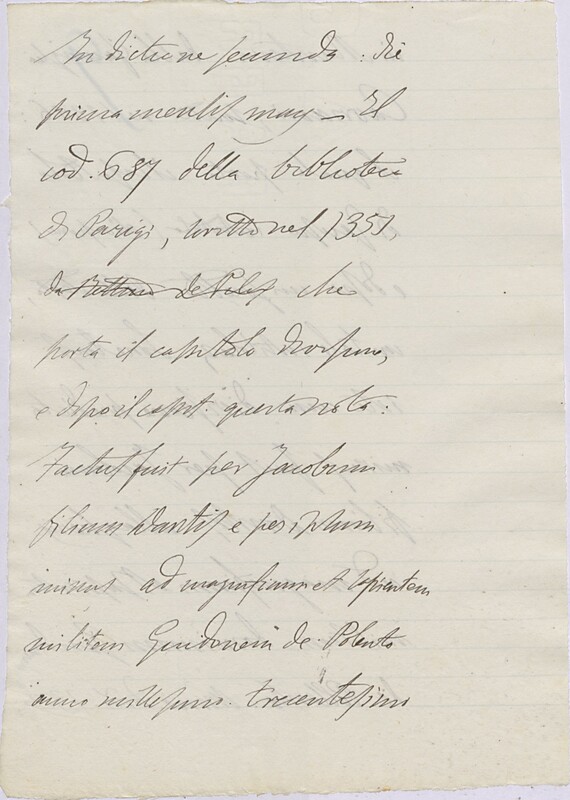 Indictione secunda: die
prima mensis may – Il
cod. 687 della biblioteca
di Parigi, scritto nel 1351,
da de che
porta il capitolo
e dopo il capit. questa nota:
Factus fuit per Jacobum
filium Dantis e per ipsum
missus ad magnificum et sapientem
militem Guidonem de Polenta
anno millesimo trecentesimo